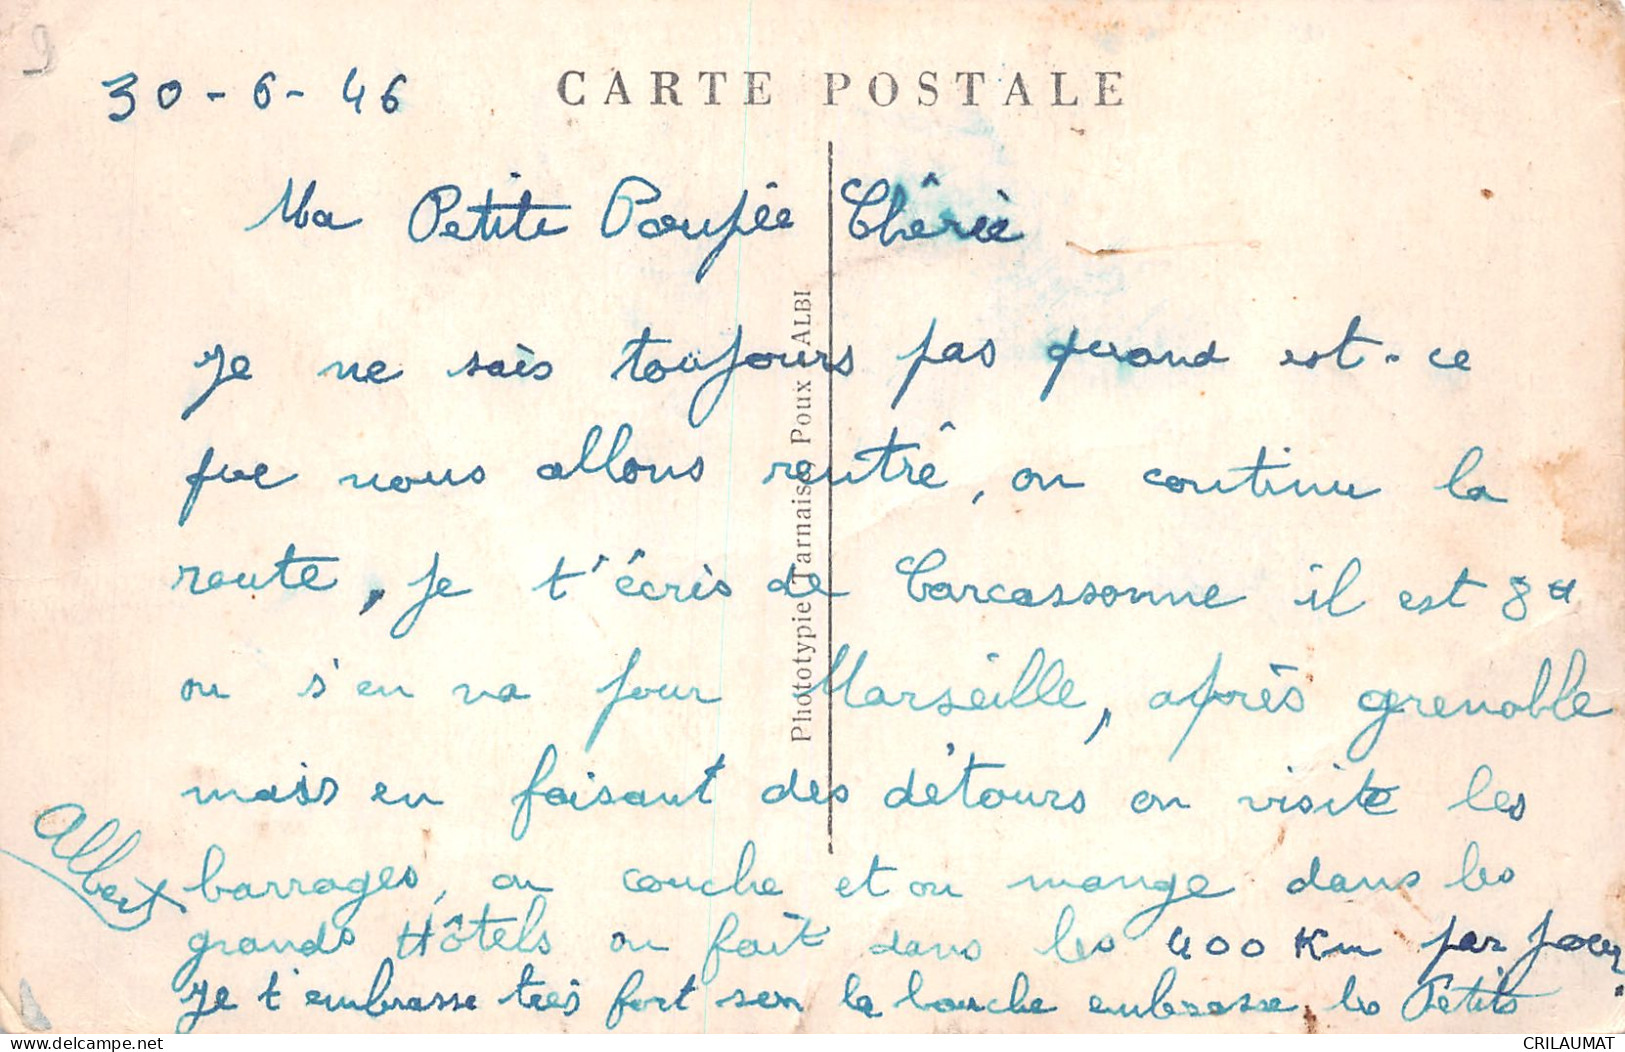 9
30-6-46
CARTE POSTALE
Ma Petite Poupée Chérie
Je ne sais toujours pas quand est-ce
que nous allons rentré, on continu la
route, je t'écris de Carcassonne il est 8H
on s'en va pour Marseille, après grenoble
mais en faisant des détours on visite les
barrages, on couche et on mange dans les
grands Hôtels on fait dans les 400 Km par jour
Je t'embrasse très fort sur la bouche embrasse les Petits
Albert
Phototypie Tarnaise Poux ALBI
CRILAUMAT